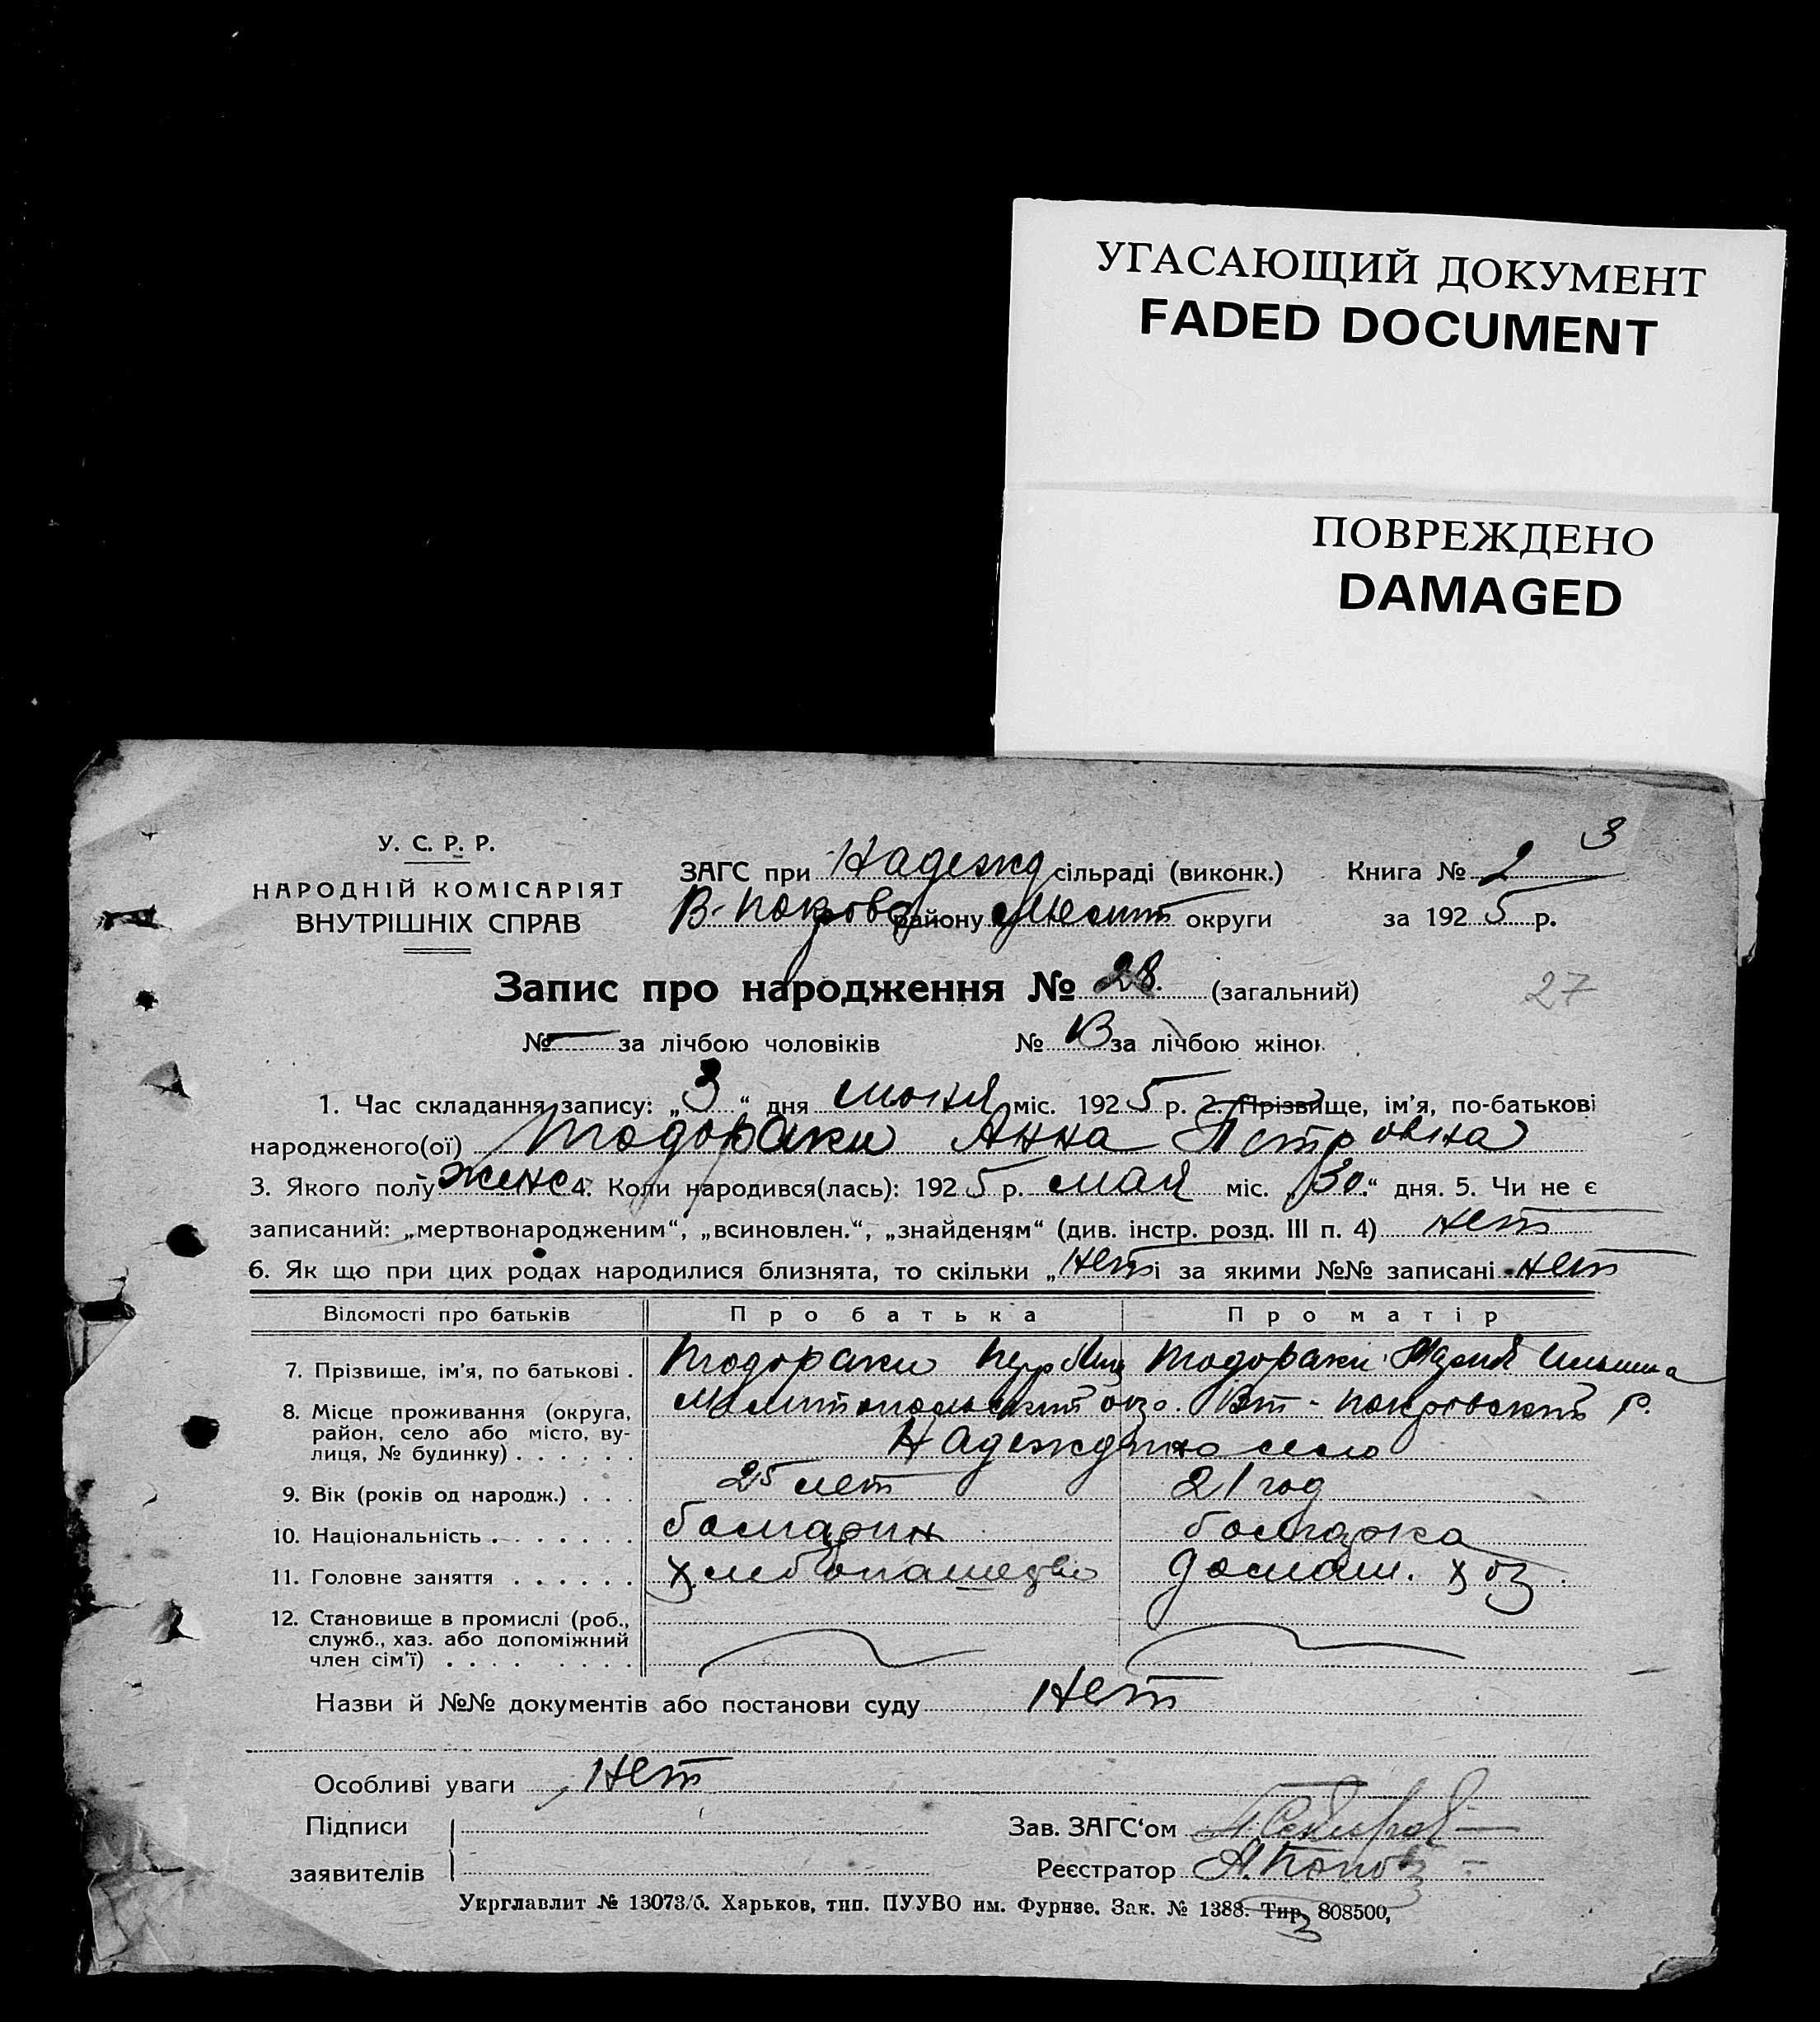 УГАСАЮЩИЙ ДОКУМЕНТ
FADED DOCUMENT
ПОВРЕЖДЕНО
DAMAGED
3
У. С. Р. Р.
НАРОДНІЙ КОМІСАРІЯТ
ВНУТРІШНІХ СПРАВ
ЗАГС при Надежд сільраді (виконк.) Книга № 2
В-Покров району Мелит округи за 1925 р.
Запис про народження № 28. (загальний) 27
№ — за лічбою чоловіків № 13 за лічбою жінок
1. Час складання запису: „3“ дня июня міс. 1925 р. 2. Прізвище, ім’я, по-батькові
народженого(ої) Тодораки Анна Петровна
3. Якого полу женс 4. Коли народився(лась): 1925 р. мая міс. „30“ дня. 5. Чи не є
записаний: „мертвонародженим“, „всиновлен.“, „знайденям“ (див. інстр. розд. III п. 4) нет
6. Як що при цих родах народилися близнята, то скільки „нет і за якими №№ записані нет
Відомості про батьків Про батька Про матір
7. Прізвище, ім’я, по батькові . Тодораки Тодораки Мария Ильинна
8. Місце проживання (округа, район, село або місто, вулиця, № будинку) . . . . . . Мелитопольский окр. Вт-Покровский р.
Надеждино село
9. Вік (років од народж.) . . . 25 лет 21 год
10. Національність . . . . . . . болгарин болгарка
11. Головне заняття . . . . . . хлебопашедво домаш. хоз.
12. Становище в промислі (роб.,
служб., хаз. або допоміжний
член сім’ї) . . . . . . . . .
Назви й №№ документів або постанови суду нет
Особливі уваги нет
Підписи
заявителів
Зав. ЗАГС‘ом
Реєстратор А. Попов
Укрглавлит № 13073/б. Харьков, тип. ПУУВО им. Фрунзе. Зак. № 1388. Тир. 808500,